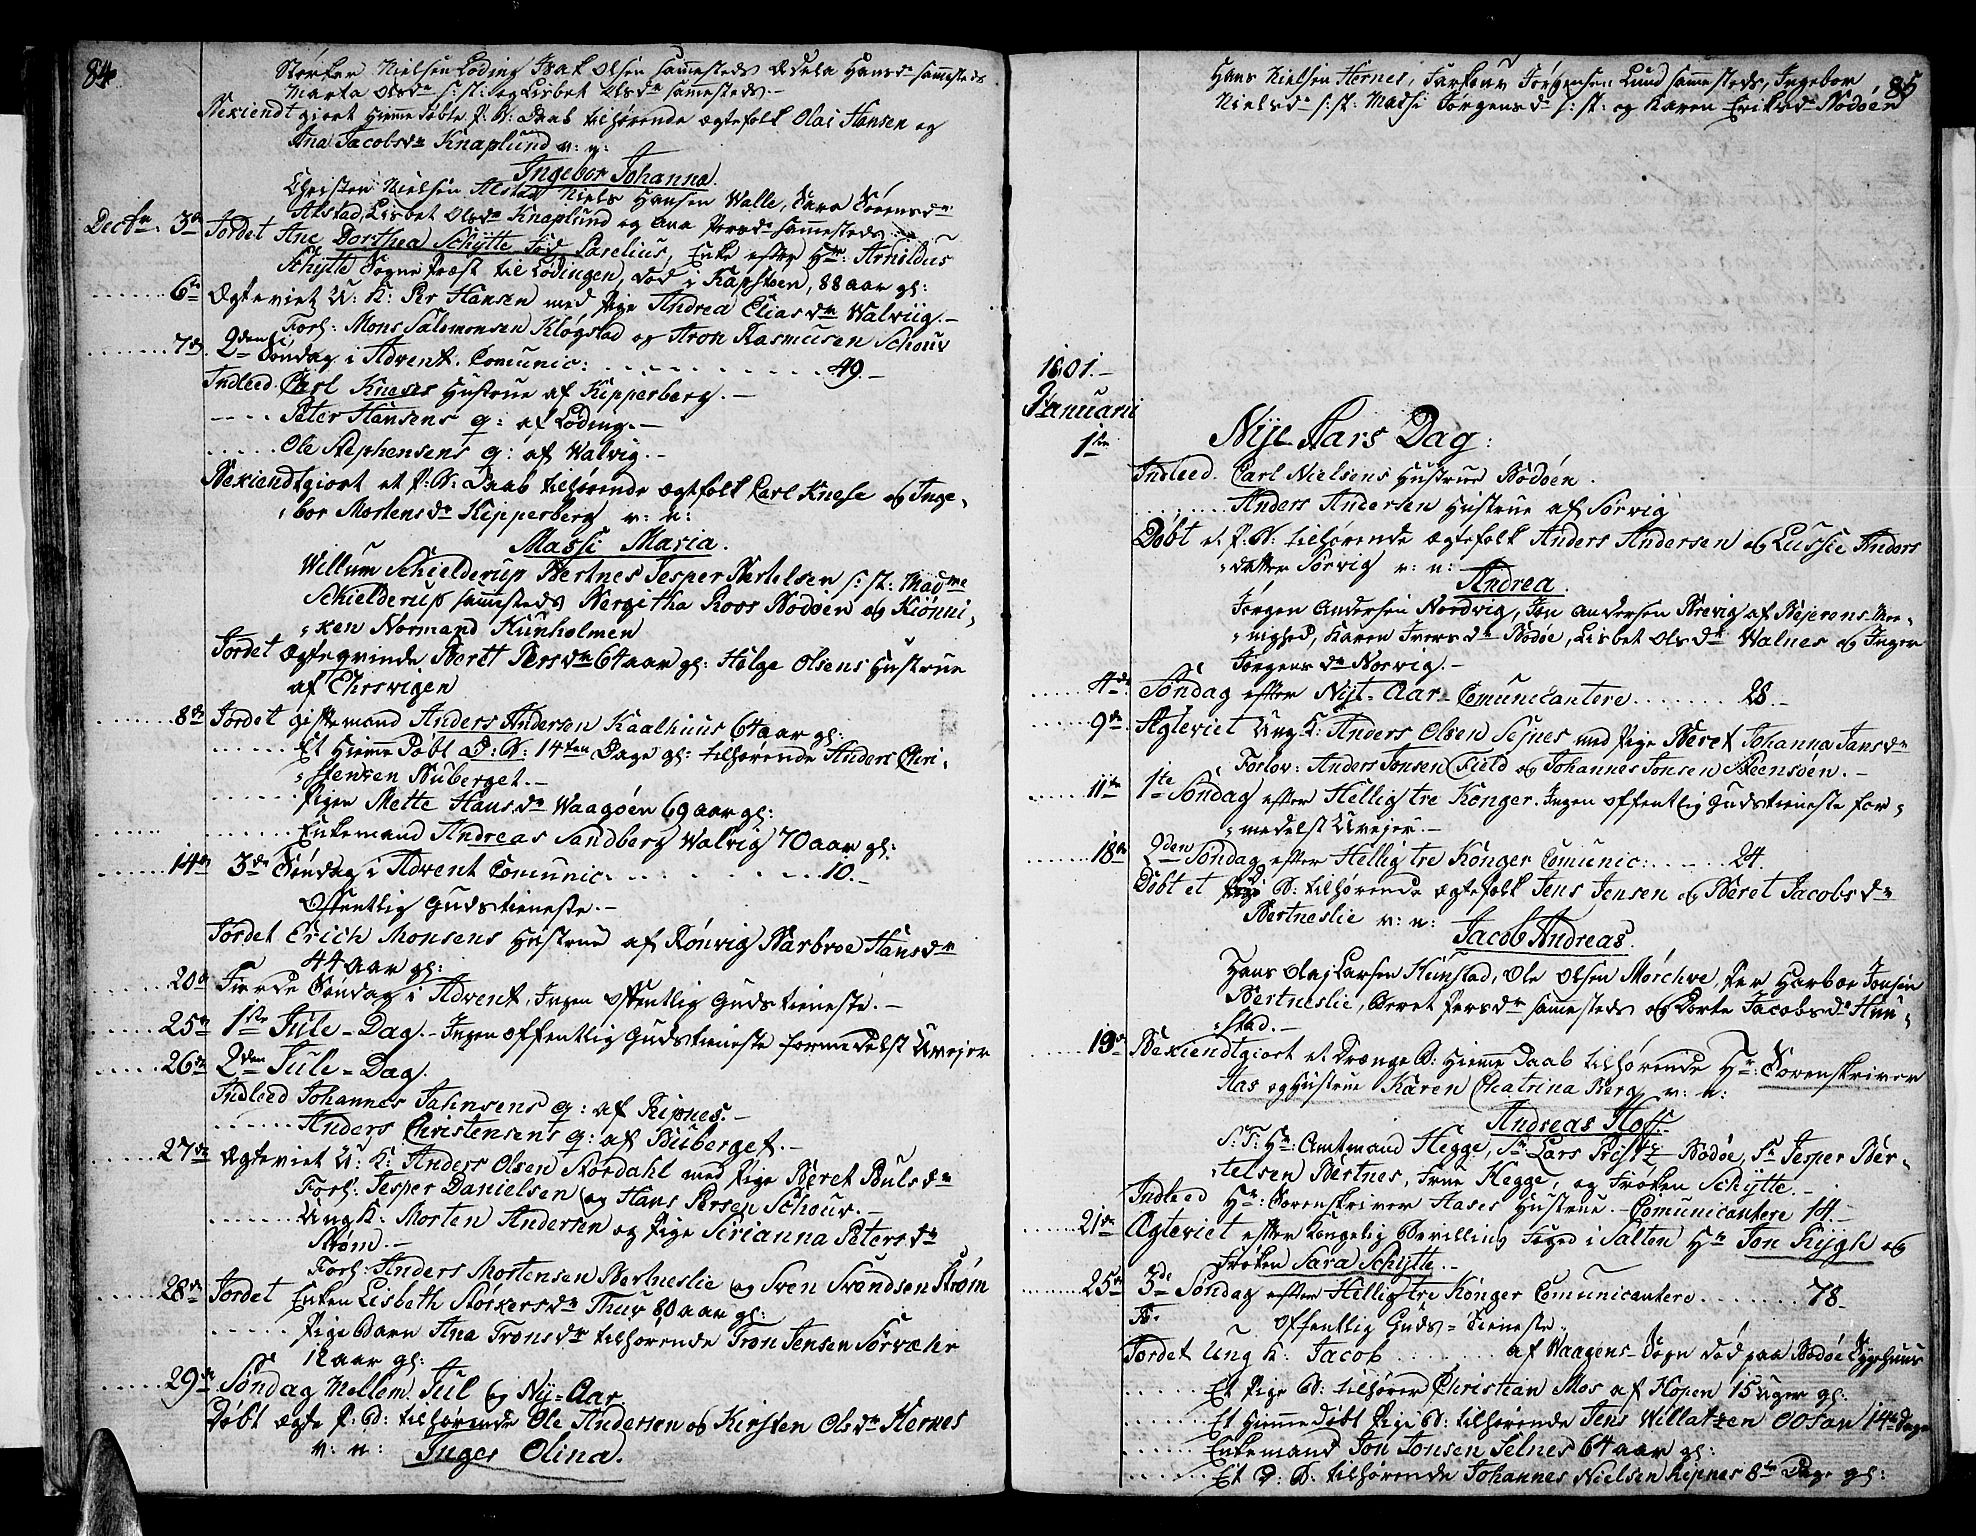 84
Størker Nielsen Løding Isak Olsen sammesteds Adela Hansdr sammesteds
Marta Olsdr s: st: og Lisbet Olsdr sammesteds.-
Bekiendtgiort Hiemmedøbte P: B: Daab tilhørende Ægtefolk Olai Hansen og
Ana Jacobsdr Knaplund v: n:
Ingebor Johanna.
Christen Nielsen Alstad Niels Hansen Walle, Sara Sørensdr
Alstad, Lisbet Olsdr Knaplund og Ana Persdr sammesteds
Decbr. 3de Jordet Ane Dorthea Schytte Fød Parelius, Enke efter Hr: Arnildus
Schytte Sogne Præst til Lødingen, død i Kapstøen, 88 aar gl:
6te Ægteviet U: K: Per Hansen med Pige Andrea Eliasdr Walviig.-
Forl: Mons Salomonsen Kløgstad og Aron Rasmusen Schouv
7de 2den Søndag i Advent. Comunic: 49.-
Indleed. Carl Kneses Hustrue af Kipperberg.-
Peter Hansens q: af Løding.-
Ole Stephensens q: af Walvig.-
Bekiendtgiort et P: B: Daab tilhørende Ægtefolk Carl Knese og Inge-
bor Mortensdr Kipperberg v: n:
Massi Maria.
Willum Schielderup Bertnes Jesper Bertelsen s: st: Madme
Schielderup sammesteds Bergitha Roos Bodøen og Kiønni-
ken Normand Hunholmen
Jordet Ægteqvinde Berit Persdr 64 aar gl: Helge Olsens Hustrue
af Ehrsvigen
8de Jordet giftemand Anders Andersen Kaalhuus 64 aar gl:
Et Hiemmedøbt D: B: 14ten Dage gl: tilhørende Anders Chri-
stensen Buberget.-
Pigen Mette Hansdr Waagøen 69 aar gl:
Enkemand Andreas Sandberg Walvig 70 aar gl:
14de 3de Søndag i Advent Comunic. 10.-
Offentlig Gudstieneste.-
Jordet Erich Monsens Hustrue af Rønvig Barbroe Hansdr
44 aar gl:
20de Fierde Søndag i Advent, Ingen offentlig Gudstieneste.-
25de 1ste Jule-Dag.- Ingen offentlig Gudstieneste formedelst Uvejer
26de 2den Jule-Dag.
Indleed Johannes Jahnsens q: af Ripnes.-
Anders Christensens q: af Buberget.-
27de Ægteviet U: K: Anders Olsen Stordahl med Pige Beret Bulsdr
Forl: Jesper Danielsen og Hans Persen Schouv.-
Ungk: Morten Andersen og Pige Sirianna Petersdr
Strøm.-
Forl: Anders Mortensen Bertneslie og Sven Svendsen Strøm
28de Jordet Enken Lisbeth Størkersdr Thuv 80 aar gl:
Pige Barn Ana Tronsdr tilhørende Tron Jensen Sørvæhr
12 aar gl:
29de Søndag Mellem Jul og Ny-Aar
Døbt Ægte P: B: tilhørende Ole Andersen og Kirsten Olsdr Hernes
v: n: Inger Olina.
85
Hans Nielsen Hernes, Tarkent Jørgensen Lund sammesteds, Ingebor
Nielsdr s: st: Massi Jørgensdr s: st: og Karen Eriksdr Bodøen
1801.-
Januarii
1ste Nyt Aars Dag:
Indleed. Carl Nielsens Hustrue Bodøen.
Anders Andersen Hustrue af Sørvig
Døbt et P: B: tilhørende Ægtefolk Anders Andersen og Lussie Anders
datter Sørvig v: n:
Andrea.
Jørgen Andersen Nordvig, Jon Andersen Brevig af Bejerens Me-
nighed, Karen Iversdr Bodøe, Lisbet Olsdr Walnes og Inger
Jørgensdr Norvig.-
4de Søndag efter Nyt-Aar Comunicantere 28.-
9de Ægteviet Ung K: Anders Olsen Sejnes med Pige Beret Johanna Jansdr
Forlov: Anders Jonsen Field og Johannes Jonsen Steensøen.-
11te 1te Søndag efter Hellig tre Konger. Ingen offentlig Gudstieneste for-
medelst Uvejer.-
18de 2den Søndag efter Hellig tre Konger Comunic: 24.
Døbt et D B: tilhørende Ægtefolk Jens Jensen og Beret Jacobsdr
Bertneslie v: n:
Jacob Andreas.
Hans Olaj Larsen Hunstad, Ole Olsen Mørchve, Per Harboe Jonsen
Bertneslie, Beret Persdr sammesteds og Dorte Jacobsdr Hun-
stad.-
19de Bekiendtgiort et Drænge B: Hiemme Daab tilhørende Hr: Sorenskriver
Aas og Hustrue Karen Chatrina Berg v: n:
Andreas Hoff.
S: T: Hr: Amtmand Hegge, Sr Lars Bodøe, Sr Jesper Ber-
telsen Bertnes, Frue Hegge, og Frøken Schytte.-
Indleed Hr: Sorenskriver Aases Hustrue.- Comunicantere 14.-
21de Ægteviet efter Kongelig Bevilling Foged i Salten Hr Jon Rygh og
Frøken Sara Schytte.-
25de 3de Søndag efter Hellig tre Konger Comunicantere 78.
Offentlig Guds-Tieneste.
Jordet Ung K: Jacob af Waagens-Sogn død paa Bodøe Sygehuus
Et Pige B: tilhører Christian Mos af Hopen 15 uger gl:
Et Hiemmedøbt Pige B: tilhørende Jens Willatzen Oosan 14 Dage
Enkemand Jon Jonsen Selnes 64 aar gl:
Et D: B: tilhørende Johannes Nielsen Ripnes 8te Dage gl: